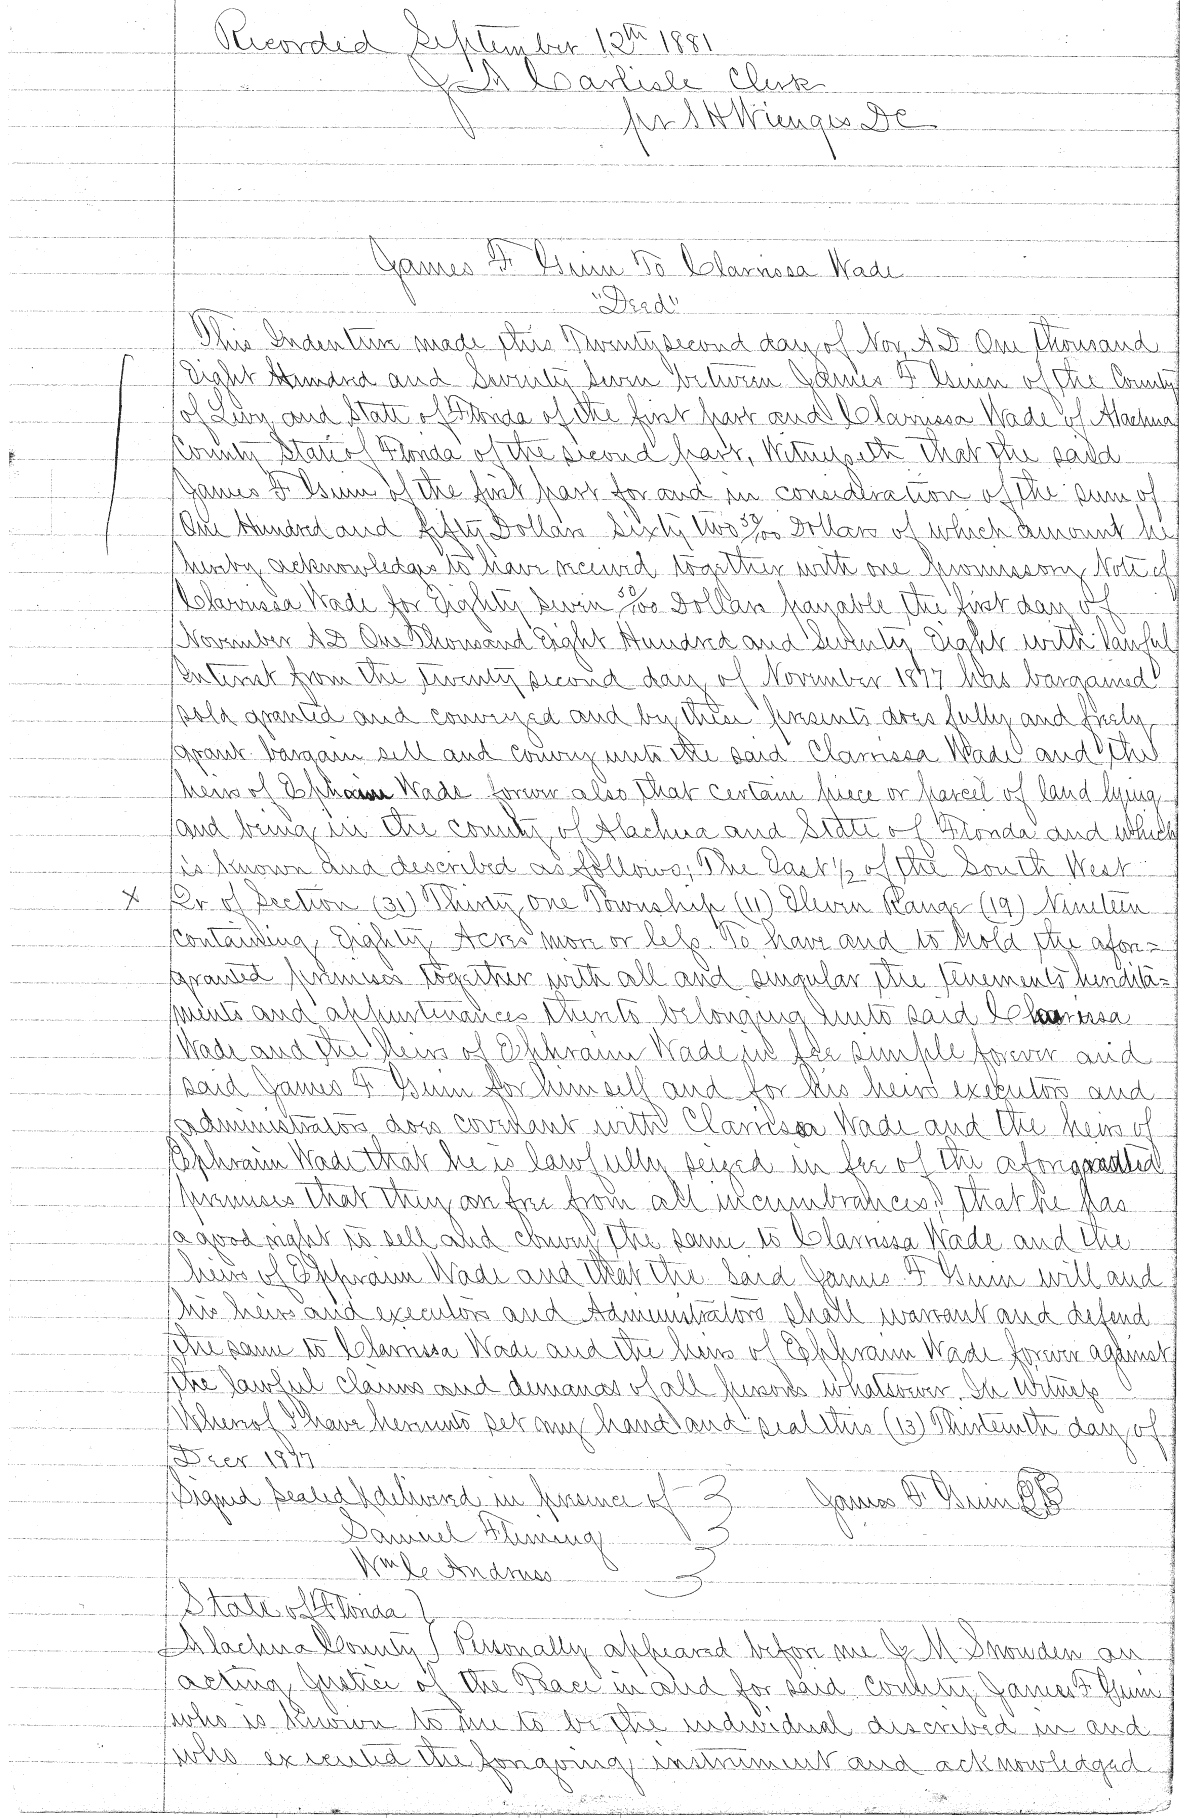 Recorded September 12th 1881
J A Carlisle Clerk
pr S H Wienges DC
James F Gunn To Clarrissa Wade
"Deed"
This Indenture made this Twenty second day of Nov, AD One thousand
Eight Hundred and Seventy seven between James F Gunn of the County
of Levy and State of Florida of the first part and Clarrissa Wade of Alachua
County State of Florida of the second part, Witnesseth that the said
James F Gunn of the first part for and in consideration of the sum of
One Hundred and fifty Dollars Sixty two 50/100 Dollars of which amount he
hereby acknowledges to have received together with one promissory Note of
Clarrissa Wade for Eighty Seven 50/100 Dollars payable the first day of
November AD One Thousand Eight Hundred and Seventy Eight with lawful
Interest from the twenty second day of November 1877 has bargained
sold granted and conveyed and by these presents does fully and freely
grant bargain sell and convey unto the said Clarrissa Wade and the
heirs of Ephraim Wade forever also that certain piece or parcel of land lying
and being in the county of Alachua and State of Florida and which
is known and described as follows; The East 1/2 of the South West
X Qr of Section (31) Thirty one Township (11) Eleven Range (19) Nineteen
containing Eighty Acres more or less. To have and to Hold the afore=
granted premises together with all and singular the tenements heredita=
ments and appurtenances thereto belonging unto said Clarrissa
Wade and the heirs of Ephraim Wade in fee simple forever and
said James F Gunn for himself and for his heirs executors and
administrators does covenant with Clarrissa Wade and the heirs of
Ephraim Wade that he is lawfully seized in fee of the aforegranted
premises that they are free from all incumbrances; that he has
a good right to sell and convey the same to Clarrissa Wade and the
heirs of Ephraim Wade and that the said James F Gunn will and
his heirs and executors and Administrators shall warrant and defend
the same to Clarrissa Wade and the heirs of Ephraim Wade forever against
the lawful claims and demands of all persons whatsoever. In Witness
Whereof I have hereunto set my hand and seal this (13) Thirteenth day of
Decr 1877
Signed Sealed & delivered in presence of James F Gunn
Samuel Fleming
Wm C Andruss
State of Florida
Alachua County Personally appeared before me J M Snowden an
acting Justice of the Peace in and for said county James F Gunn
who is known to me to be the individual discribed in and
who executed the foregoing instrument and acknowledged